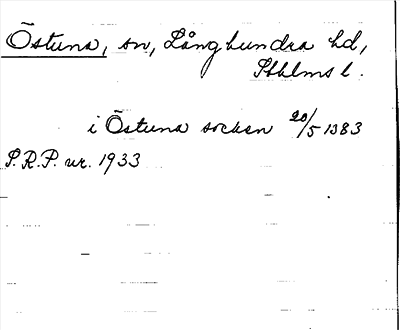 Östuna, sn, Långhundra hd,
Sthlms l.
i Östuna socken 20/5 1383
S.R.P. nr. 1933